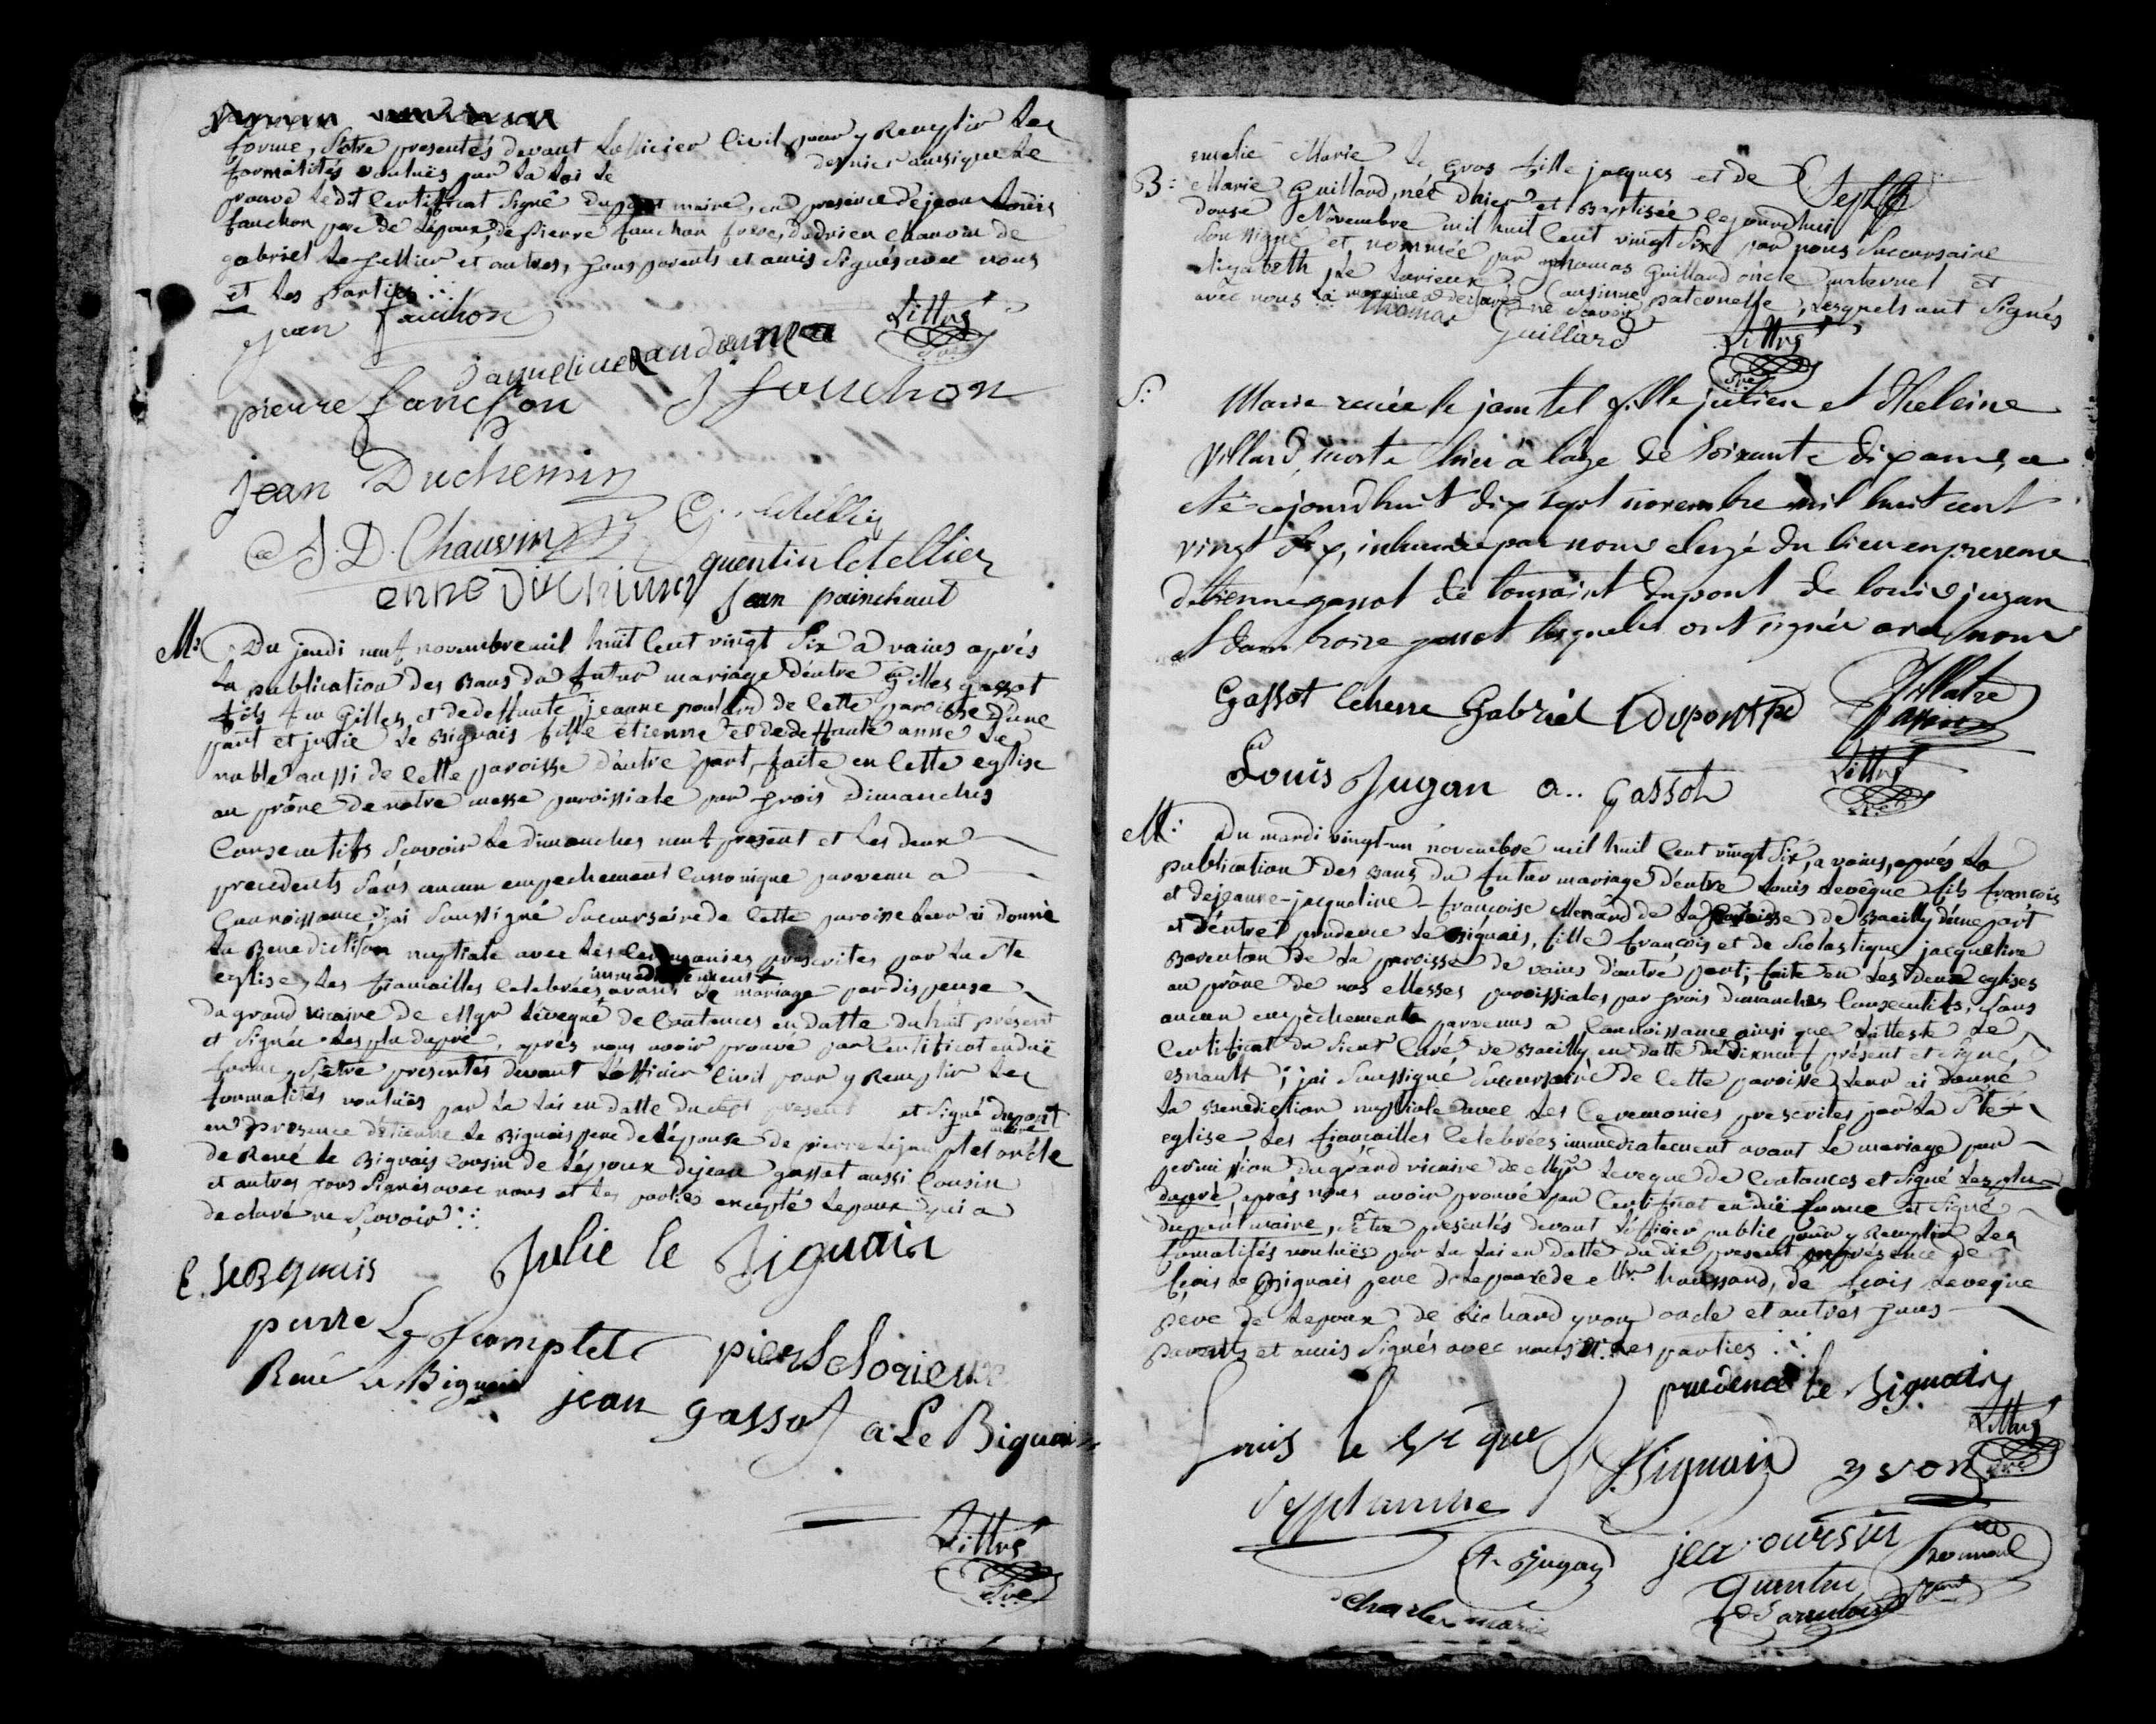 forme, sêtre presentés devant lofficier civil pour y Remplir les
formalités voulües par la loi le dernier ainsi que le
prouve ledit certificat signé dupont maire, en presence de jean Louis
fauchon pere de lépoux, de pierre fauchon frere, dadrien chauvin de
gabriel le tellier et autres, tous parents et amis signés avec nous
et les parties
jean fauchon
Littré
pierre fauchon J fauchon
jean Duchemin
A. D. Chauvin
quentin letellier
jean painchaut
M: Du jeudi neuf novembre mil huit cent vingt six à vains aprés
la publication des bans du futur mariage d'entre gilles gassot
fils feu Gilles, et de deffunte jeanne poulard de cette paroisse d'une
part et julie le Biguais fille etienne et de deffunte anne le
noble aussi de cette paroisse d'autre part, faite en cette eglise
au prône de notre messe paroissiale par trois dimanches
consecutifs sçavoir le dimanches neuf present et les deux
precedents sans aucun empechement canonique parvenu a
connoissance, j'ai soussigné succursaire de cette paroisse leur ai donné
la Benediction nuptiale avec les ceremonies prescrites par la Ste
eglise, les fiancailles celebrées immediatement avant le mariage par dispense
du grand vicaire de Mgr lévêque de Coutances en datte du huit présent
et signée lesplu dupré, aprés nous avoir prouvé par certificat en düe
forme, sêtre presentés devant lofficier civil pour y Remplir les
formalités voulües par la loi en datte du sept present et signé dupont
maire
en presence d'etienne le Biguais pere de lépouse de pierre lejamptel oncle
de René le Biguais cousin de lépoux de jean gassot aussi cousin
et autres tous signés avec nous et les parties excepté lepoux qui a
declaré ne sçavoir
E. le Biguais Julie le Biguais
pierre Le Jamptel pierre lelorieux
René le Biguais jean gassot a Le Biguais
Littré
Sre
B: emelie Marie le gros fille jacques et de
Marie Guillard, née d'hier et Baptisée cejourdhui
douse Novembre mil huit cent vingt six par nous succursaire
soussigné et nommée par thomas guillard oncle maternel et
elizabeth le lorieux cousinne paternelle, lesquels ont signés
avec nous la marine a declaré ne scavoir
thomas Guillard
Littré
Sre
S: Marie renée le jamtel fille julien et d'heleine
Villard, morte hier à l'age de soixante dix ans, a
eté cejourd'huit dix sept novembre mil huit cent
vingt six, inhumée par nous clergé du lieu en presence
d'etienne gassot de tousaint dupont de louis jugan
et d'ambroise gassot lesquels ont signée avec nous
Gassot etienne Gabriel Dupont
Louis Jugan a.. Gassot
Littré
Sre
M: Du mardi vingt-un novembre mil huit cent vingt six, a vains, aprés la
publication des bans du futur mariage d'entre Louis levêque fils françois
et de jeanne-jacqueline-françoise Menard de la paroisse de Bacilly d'une part
et d'entre prudence le Biguais, fille françois et de scolastique jacqueline
Baventon de la paroisse de vains d'autre part; faite en les deux eglises
au prône de nos Messes paroissiales par trois dimanches consecutifs, sans
aucun empêchements parvenus a connoissance ainsi que l'atteste le
certificat du sieur Curé de Bacilly en datte du dixneuf présent et signé
esnault; j'ai soussigné succursaire de cette paroisse leur ai donné
la Benediction nuptiale avec les ceremonies prescrites par la Ste
eglise, les fiancailles celebrées immediatement avant le mariage par
permission du grand vicaire de Mgr leveque de Coutances et signé lesplu
dupré aprés nous avoir prouvé par certificat en düe forme et signé
dupont maire, sêtre presentés devant lofficier public pour y Remplir les
formalités voulües par la loi en datte du dix present en presence de
fçois le Biguais pere de lepouse de Mr. haussard, de fçois leveque
pere de lepoux de Richard yvon oncle et autres tous
parents et amis signés avec nous et les parties
prudence le Biguais
Littré
Sre
Louis le vêque
Biguais yvon
desplanche
A. Jugan
charles marie